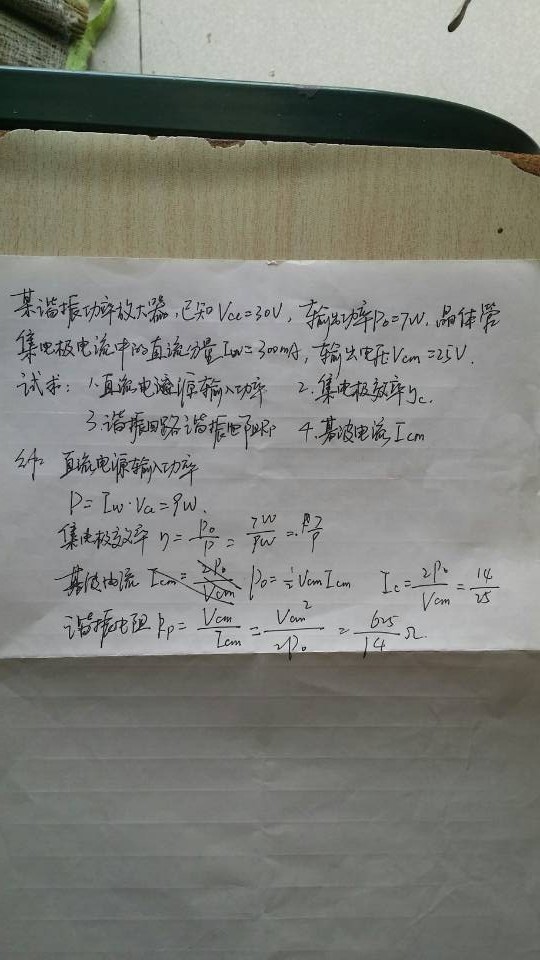 某谐振功率放大器,已知Vcc=30V,输出功率Po=7W,晶体管
集电极电流中的直流分量Ico=300mA,输出电压Vcm=25V.
试求: 1.直流电源输入功率 2.集电极效率ηc.
3.谐振回路谐振电阻Rp 4.基波电流Icm
直流电源输入功率
P=Ico·Vcc=9W.
集电极效率 η=Po/P=7W/9W=7/9
基波电流 Icm=2Po/Vcm Po=½VcmIcm Ic=2Po/Vcm=14/25
谐振电阻Rp=Vcm/Icm=Vcm²/2Po=625/14Ω